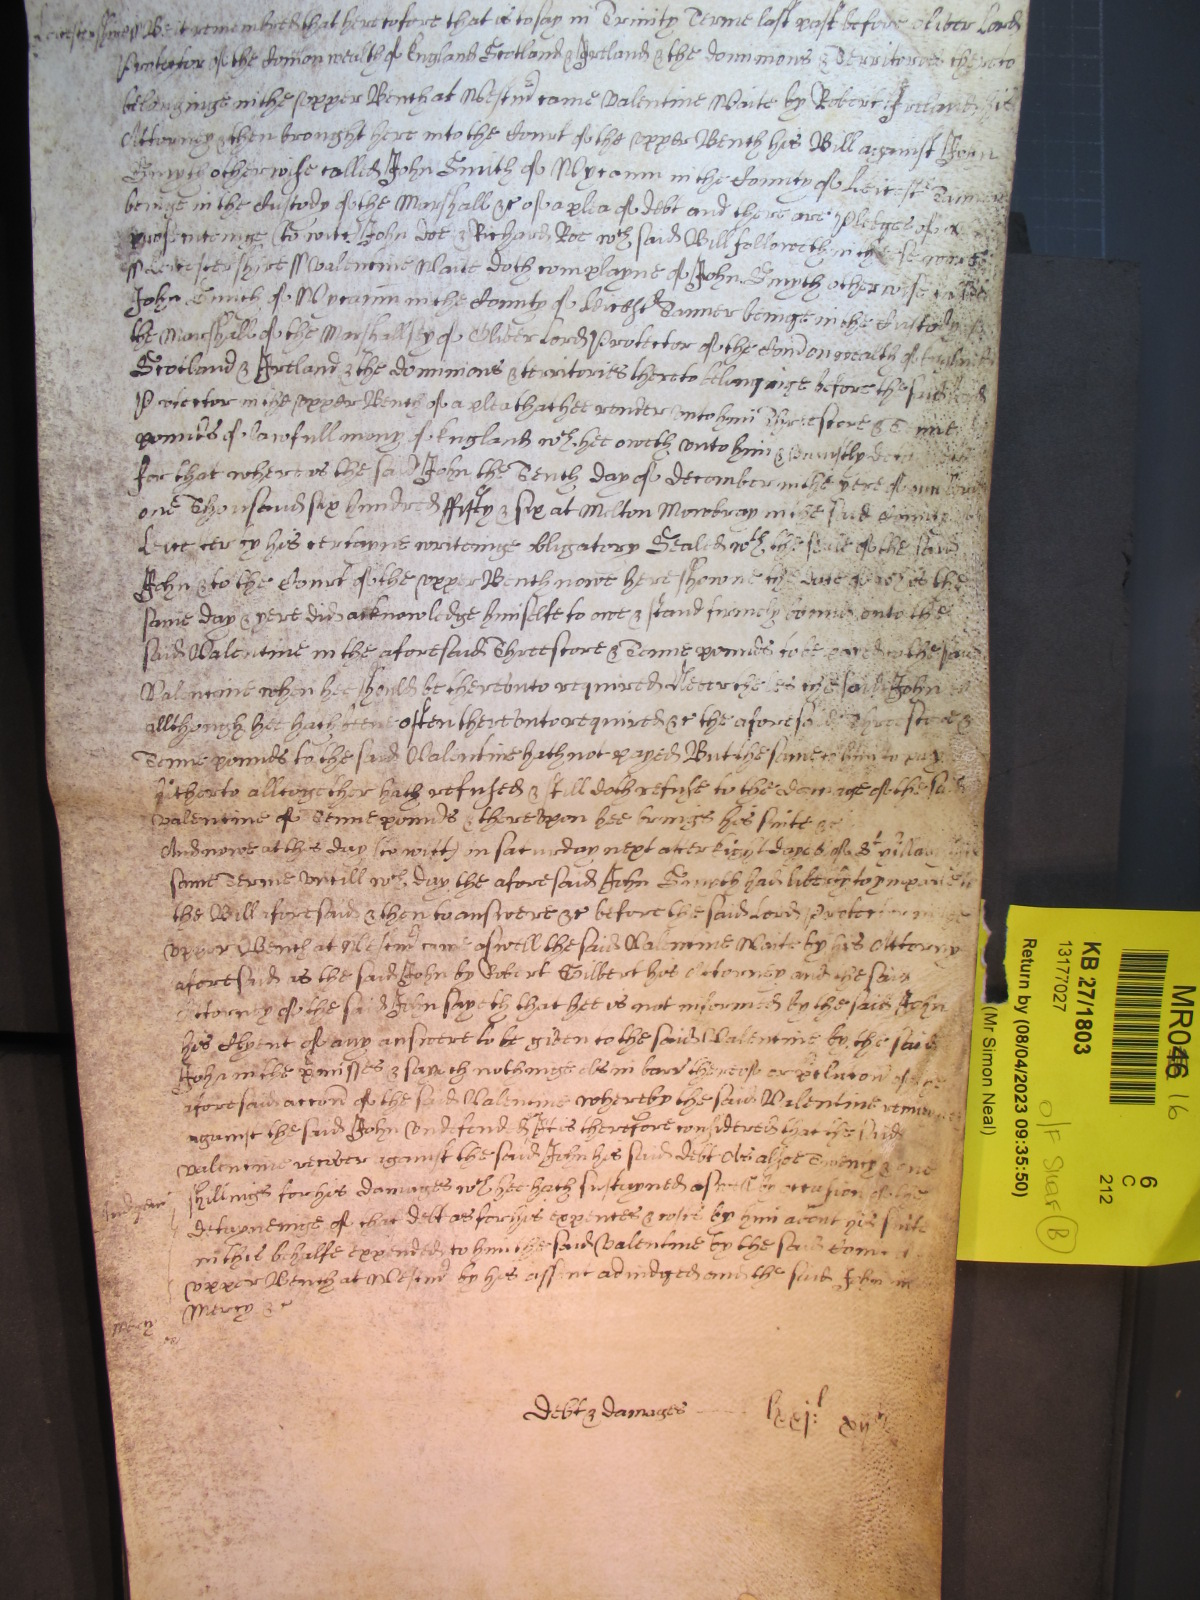 Leicestershire ss Be it remembred that heretofore that is to say in Trinity Terme last past before Oliver Lord
Protector of the Comonwealth of England Scotland & Ireland & the dominions & Territories thereto
belonginge in the upper Bench at Westmr came Valentine Waite by Robert his
Attorney & then brought here into the Court of the upper Bench his Bill against John
Smyth otherwise called John Smith of Wycamm in the County of Leicestr Tanner
beinge in the Custody of the Marshall &c of a plea of debt and there are Pledges of
prosecuteinge (to witt) John Doe & Richard Roe wch said Bill followeth in these words
ss Leicestershire ss Valentine Waite doth complayne of John Smyth otherwise called
John Smith of Wycamm in the County of Leicestr Tanner beinge in the Custody of
the Marshall of the Marshallsey of Oliver Lord Protector of the Comonwealth of England
Scotland & Ireland & the dominions & territories thereto belonginge before the said Lord
Protector in the upper Bench of a plea that hee render unto him Threescore & Tenne
pounds of lawfull mony of England wch hee oweth unto him & uniustly
For that whereas the said John the Tenth day of december in the yere of our Lord
one Thousand six hundred ffifty & six at Melton Mowbray in the said County of
Leicester by his certayne writeinge obligatory Sealed wth the seale of the said
John & to the Court of the upper Bench nowe here showne the date whereof is the
same day & yere did acknowledge himselfe to owe & stand firmely bound unto the
said Valentine in the aforesaid Threescore & Tenne pounds to be payed to the said
Valentine when hee should be thereunto required Neverthelesse the said John
allthough hee hath beene often thereunto required &c the aforesaid Threescore &
Tenne pounds to the said Valentine hath not payed But the same to him to pay
hitherto alltogether hath refused & still doth refuse to the damage of the said
Valentine of Tenne pounds & thereupon hee brings his suite &c
And nowe at this day (to witt) on Saturday next after Eight dayes of St Hillary
same Terme untill wch day the aforesaid John Smyth had liberty to imparle to
the Bill aforesaid & then to answere &c before the said Lord Protector in the
upper Bench at Westmr came aswell the said Valentine Waite by his Attorny
aforesaid as the said John by Robert Gilbert his Attorney and the said
Attorney of the said John sayeth that hee is not informed by the said John
his Clyent of any answere to be given to the said Valentine by the said
John in the pmisses & sayeth nothinge els in barr thereof or of the
aforesaid accon of the said Valentine whereby the said Valentine
against the said John undefended It is therefore considered that the said
Valentine recover against the said John his said debt As alsoe Twenty & one
shillings for his damages wch hee hath sustayned aswell by occasion of the
detayneinge of that debt as for his expences & costs by him about his suite
in this behalfe expended to him the said Valentine by the said Court
upper Bench at Westmr by his assent adiudged and the said John in
Mercy &c
Mercy
Debt & damages lxxjl
MR046 16
KB 27/1803
13177027
Return by (08/04/2023 09:35:50)
(Mr Simon Neal)
6
C
212
O/F Shar B